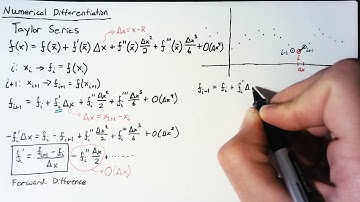 Numerical Differentiation
Taylor Series
Δx = x - x̄
f(x) = f(x̄) + f'(x̄) Δx + f''(x̄) Δx²/2 + f'''(x̄) Δx³/6 + O(Δx⁴)
i: xᵢ → fᵢ = f(xᵢ)
i+1: xᵢ₊₁ → fᵢ₊₁ = f(xᵢ₊₁)
fᵢ₊₁ = fᵢ + fᵢ' Δx + fᵢ'' Δx²/2 + fᵢ''' Δx³/6 + O(Δx⁴)
Δx = xᵢ₊₁ - xᵢ
-fᵢ' Δx = fᵢ - fᵢ₊₁ + fᵢ'' Δx²/2 + fᵢ''' Δx³/6 + O(Δx⁴)
fᵢ' = (fᵢ₊₁ - fᵢ)/Δx - fᵢ'' Δx/2 + ......
O(Δx)
Forward Difference
i-1 i i+1
Δx
fᵢ₋₁ = fᵢ + fᵢ' Δ